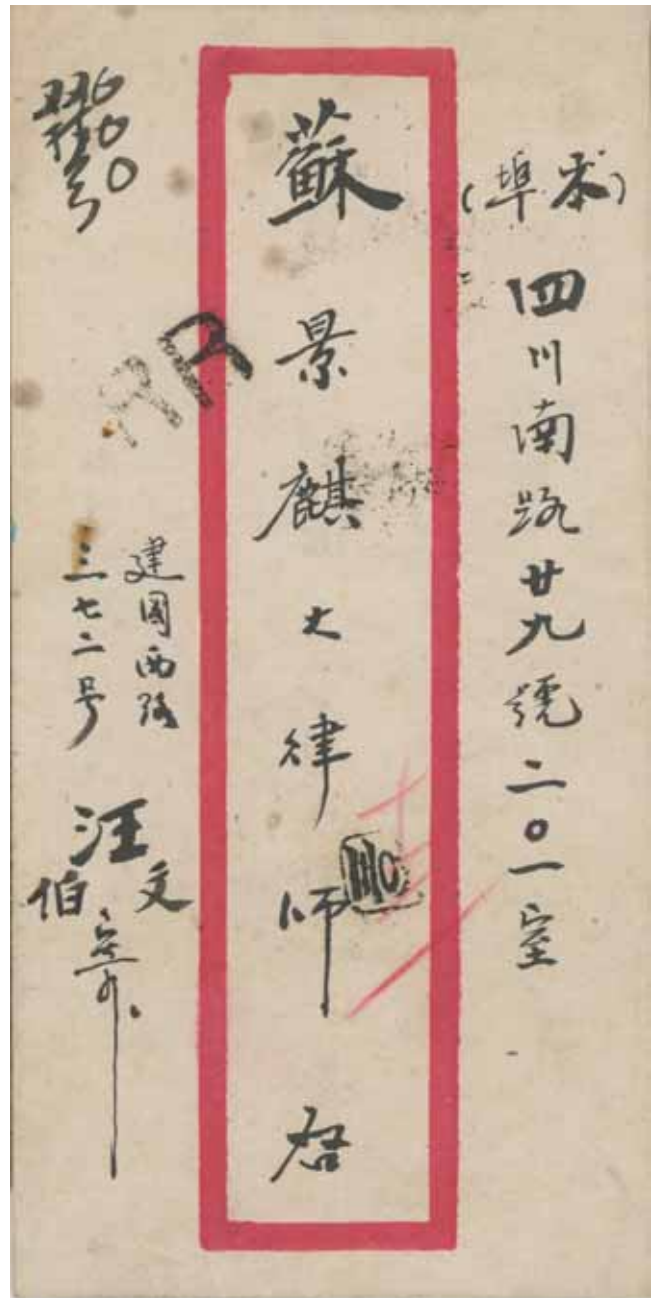 (本埠)
四川南路廿九號二〇一室
蘇景麒大律師启
建国西路
三七二号
汪文伯寄